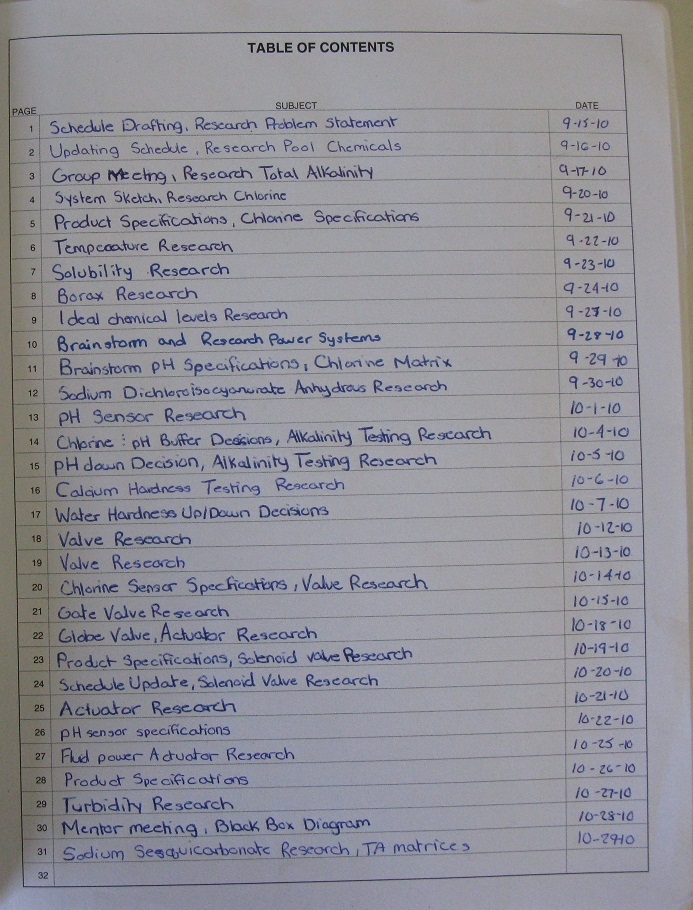 TABLE OF CONTENTS
PAGE SUBJECT DATE
1 Schedule Drafting, Research Problem Statement 9-15-10
2 Updating Schedule, Research Pool Chemicals 9-16-10
3 Group Meeting, Research Total Alkalinity 9-17-10
4 System Sketch, Research Chlorine 9-20-10
5 Product Specifications, Chlorine Specifications 9-21-10
6 Tempeoature Research 9-22-10
7 Solubility Research 9-23-10
8 Borax Research 9-24-10
9 Ideal chemical levels Research 9-27-10
10 Brainstorm and Research Power Systems 9-28-10
11 Brainstorm pH Specifications, Chlorine Matrix 9-29-10
12 Sodium Dichloroisocyanurate Anhydrous Research 9-30-10
13 pH Sensor Research 10-1-10
14 Chlorine : pH Buffer Decisions, Alkalinity Testing Research 10-4-10
15 pH down Decision, Alkalinity Testing Research 10-5-10
16 Calcium Hardness Testing Research 10-6-10
17 Water Hardness Up/Down Decisions 10-7-10
18 Valve Research 10-12-10
19 Valve Research 10-13-10
20 Chlorine Sensor Specifications, Valve Research 10-14-10
21 Gate Valve Research 10-15-10
22 Globe Valve, Actuator Research 10-18-10
23 Product Specifications, Solenoid valve Research 10-19-10
24 Schedule Update, Solenoid Valve Research 10-20-10
25 Actuator Research 10-21-10
26 pH sensor specifications 10-22-10
27 Fluid power Actuator Research 10-25-10
28 Product Specifications 10-26-10
29 Turbidity Research 10-27-10
30 Mentor meeting, Black Box Diagram 10-28-10
31 Sodium Sesquicarbonate Research, TA matrices 10-29-10
32